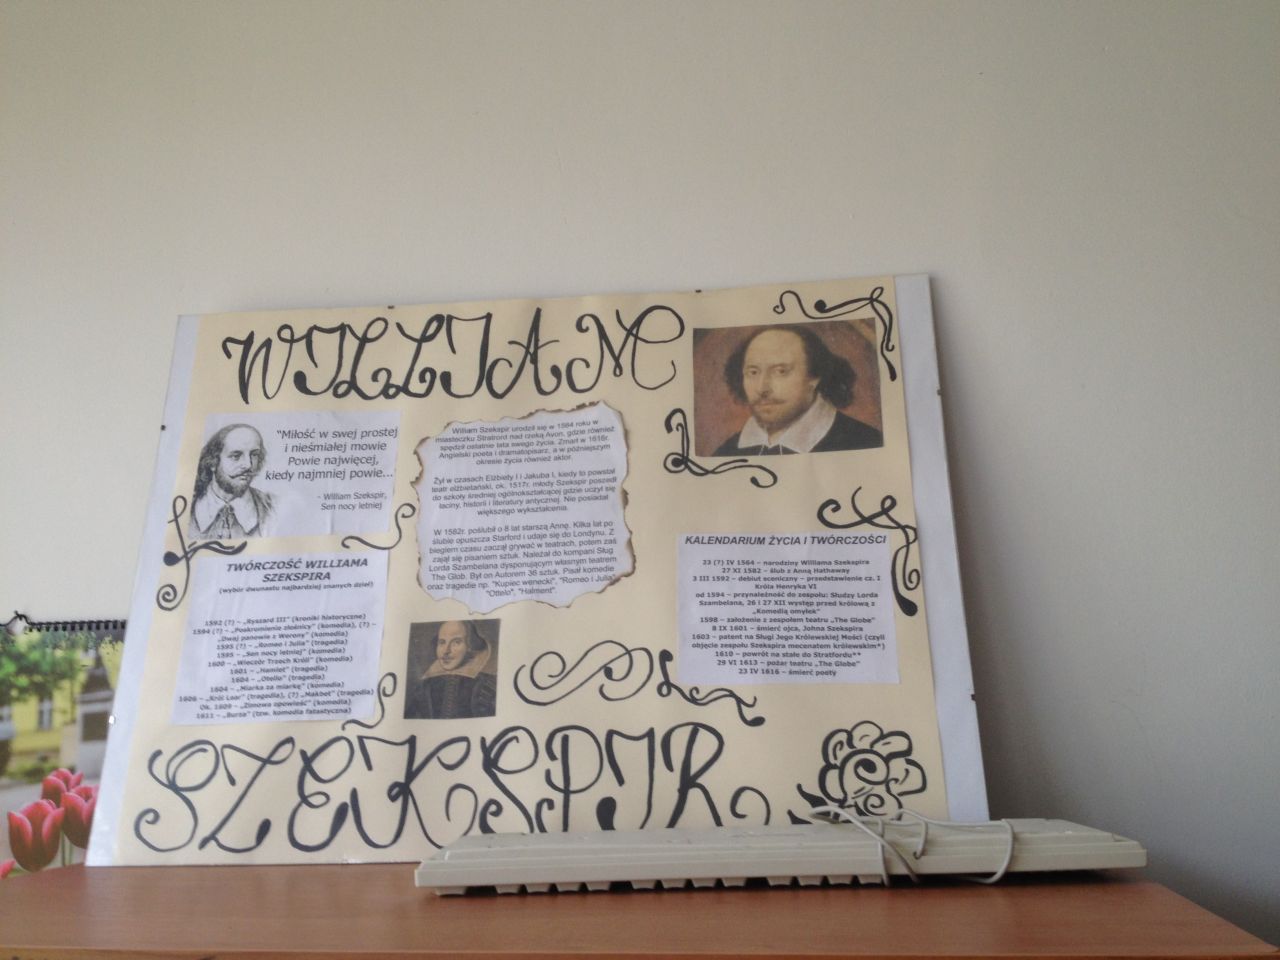 WILLIAM
"Miłość w swej prostej
i nieśmiałej mowie
Powie najwięcej,
kiedy najmniej powie...
- William Szekspir,
Sen nocy letniej
William Szekspir urodził się w 1564 roku w
miasteczku Stratrord nad rzeką Avon, gdzie również
spędził ostatnie lata swego życia. Zmarł w 1616r.
Angielski poeta i dramatopisarz, a w późniejszym
okresie życia również aktor.
Żył w czasach Elżbiety I i Jakuba I, kiedy to powstał
teatr elżbietański, ok. 1517r. młody Szekspir poszedł
do szkoły średniej ogólnokształcącej gdzie uczył się
łaciny, historii i literatury antycznej. Nie posiadał
większego wykształcenia.
W 1582r. poślubił o 8 lat starszą Annę. Kilka lat po
ślubie opuszcza Starford i udaje się do Londynu. Z
biegiem czasu zaczął grywać w teatrach, potem zaś
zajął się pisaniem sztuk. Należał do kompani Sług
Lorda Szambelana dysponującym własnym teatrem
The Glob. Był on Autorem 36 sztuk. Pisał komedie
oraz tragedie np. "Kupiec wenecki", "Romeo i Julia",
"Otello", "Halment".
TWÓRCZOŚĆ WILLIAMA
SZEKSPIRA
(wybór dwunastu najbardziej znanych dzieł)
1592 (?) – „Ryszard III" (kroniki historyczne)
1594 (?) – „Poskromienie złośnicy" (komedia), (?) –
„Dwaj panowie z Werony" (komedia)
1595 (?) – „Romeo i Julia" (tragedia)
1595 – „Sen nocy letniej" (komedia)
1600 – „Wieczór Trzech Króli" (komedia)
1601 – „Hamlet" (tragedia)
1604 – „Otello" (tragedia)
1604 – „Miarka za miarkę" (komedia)
1606 – „Król Lear" (tragedia), (?) „Makbet" (tragedia)
Ok. 1609 – „Zimowa opowieść" (komedia)
1611 – „Burza" (tzw. komedia fatastyczna)
KALENDARIUM ŻYCIA I TWÓRCZOŚCI
23 (?) IV 1564 – narodziny Williama Szekspira
27 XI 1582 – ślub z Anną Hathaway
3 III 1592 – debiut sceniczny – przedstawienie cz. I
Króla Henryka VI
od 1594 – przynależność do zespołu: Słudzy Lorda
Szambelana, 26 i 27 XII występ przed królową z
„Komedią omyłek"
1598 – założenie z zespołem teatru „The Globe"
8 IX 1601 – śmierć ojca, Johna Szekspira
1603 – patent na Sługi Jego Królewskiej Mości (czyli
objęcie zespołu Szekspira mecenatem królewskim*)
1610 – powrót na stałe do Stratfordu**
29 VI 1613 – pożar teatru „The Globe"
23 IV 1616 – śmierć poety
SZEKSPIR